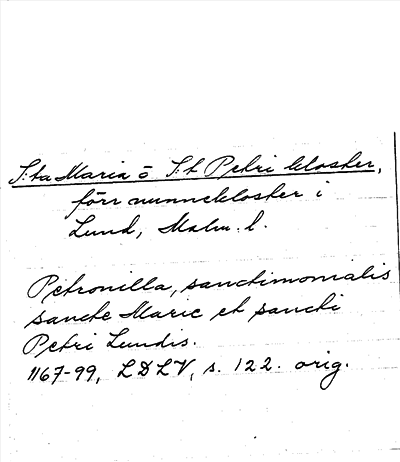 S:ta Maria o S:t Petri kloster,
förr nunnekloster i
Lund, Malm. l.
Petronilla, sanctimonialis
sancte Marie et sancti
Petri Lundis.
1167-99, LDLV, s. 122. orig.